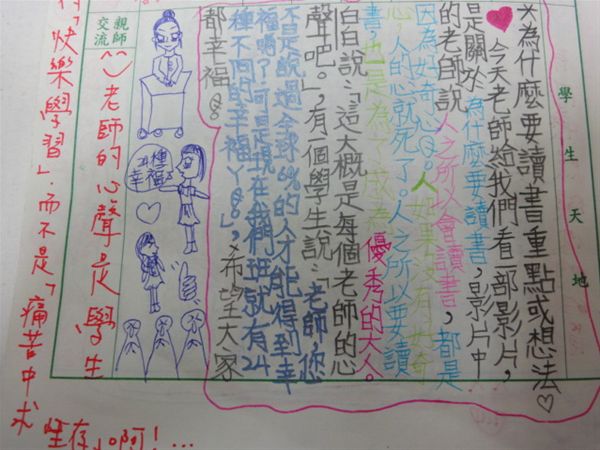 學生天地
*為什麼要讀書重點或想法♡
今天老師給我們看一部影片,
是關於為什麼要讀書,影片中
的老師說人之所以會讀書,都是
因為好奇心。人如果沒有好奇
心?人的心就死了。人之所以要讀
書,也是為了成為優秀的大人。
白白說:「這大概是每個老師的心
聲吧。」,有個學生說:「老師,您
不是說過全球6%的人才能得到幸
福嗎?可是現在我們班就有24
種不同的幸福ㄚ。」,希望大家
都幸福
24種
幸福
親師
交流
老師的心聲是學生
「快樂學習」,而不是「痛苦中求
生存」啊!...